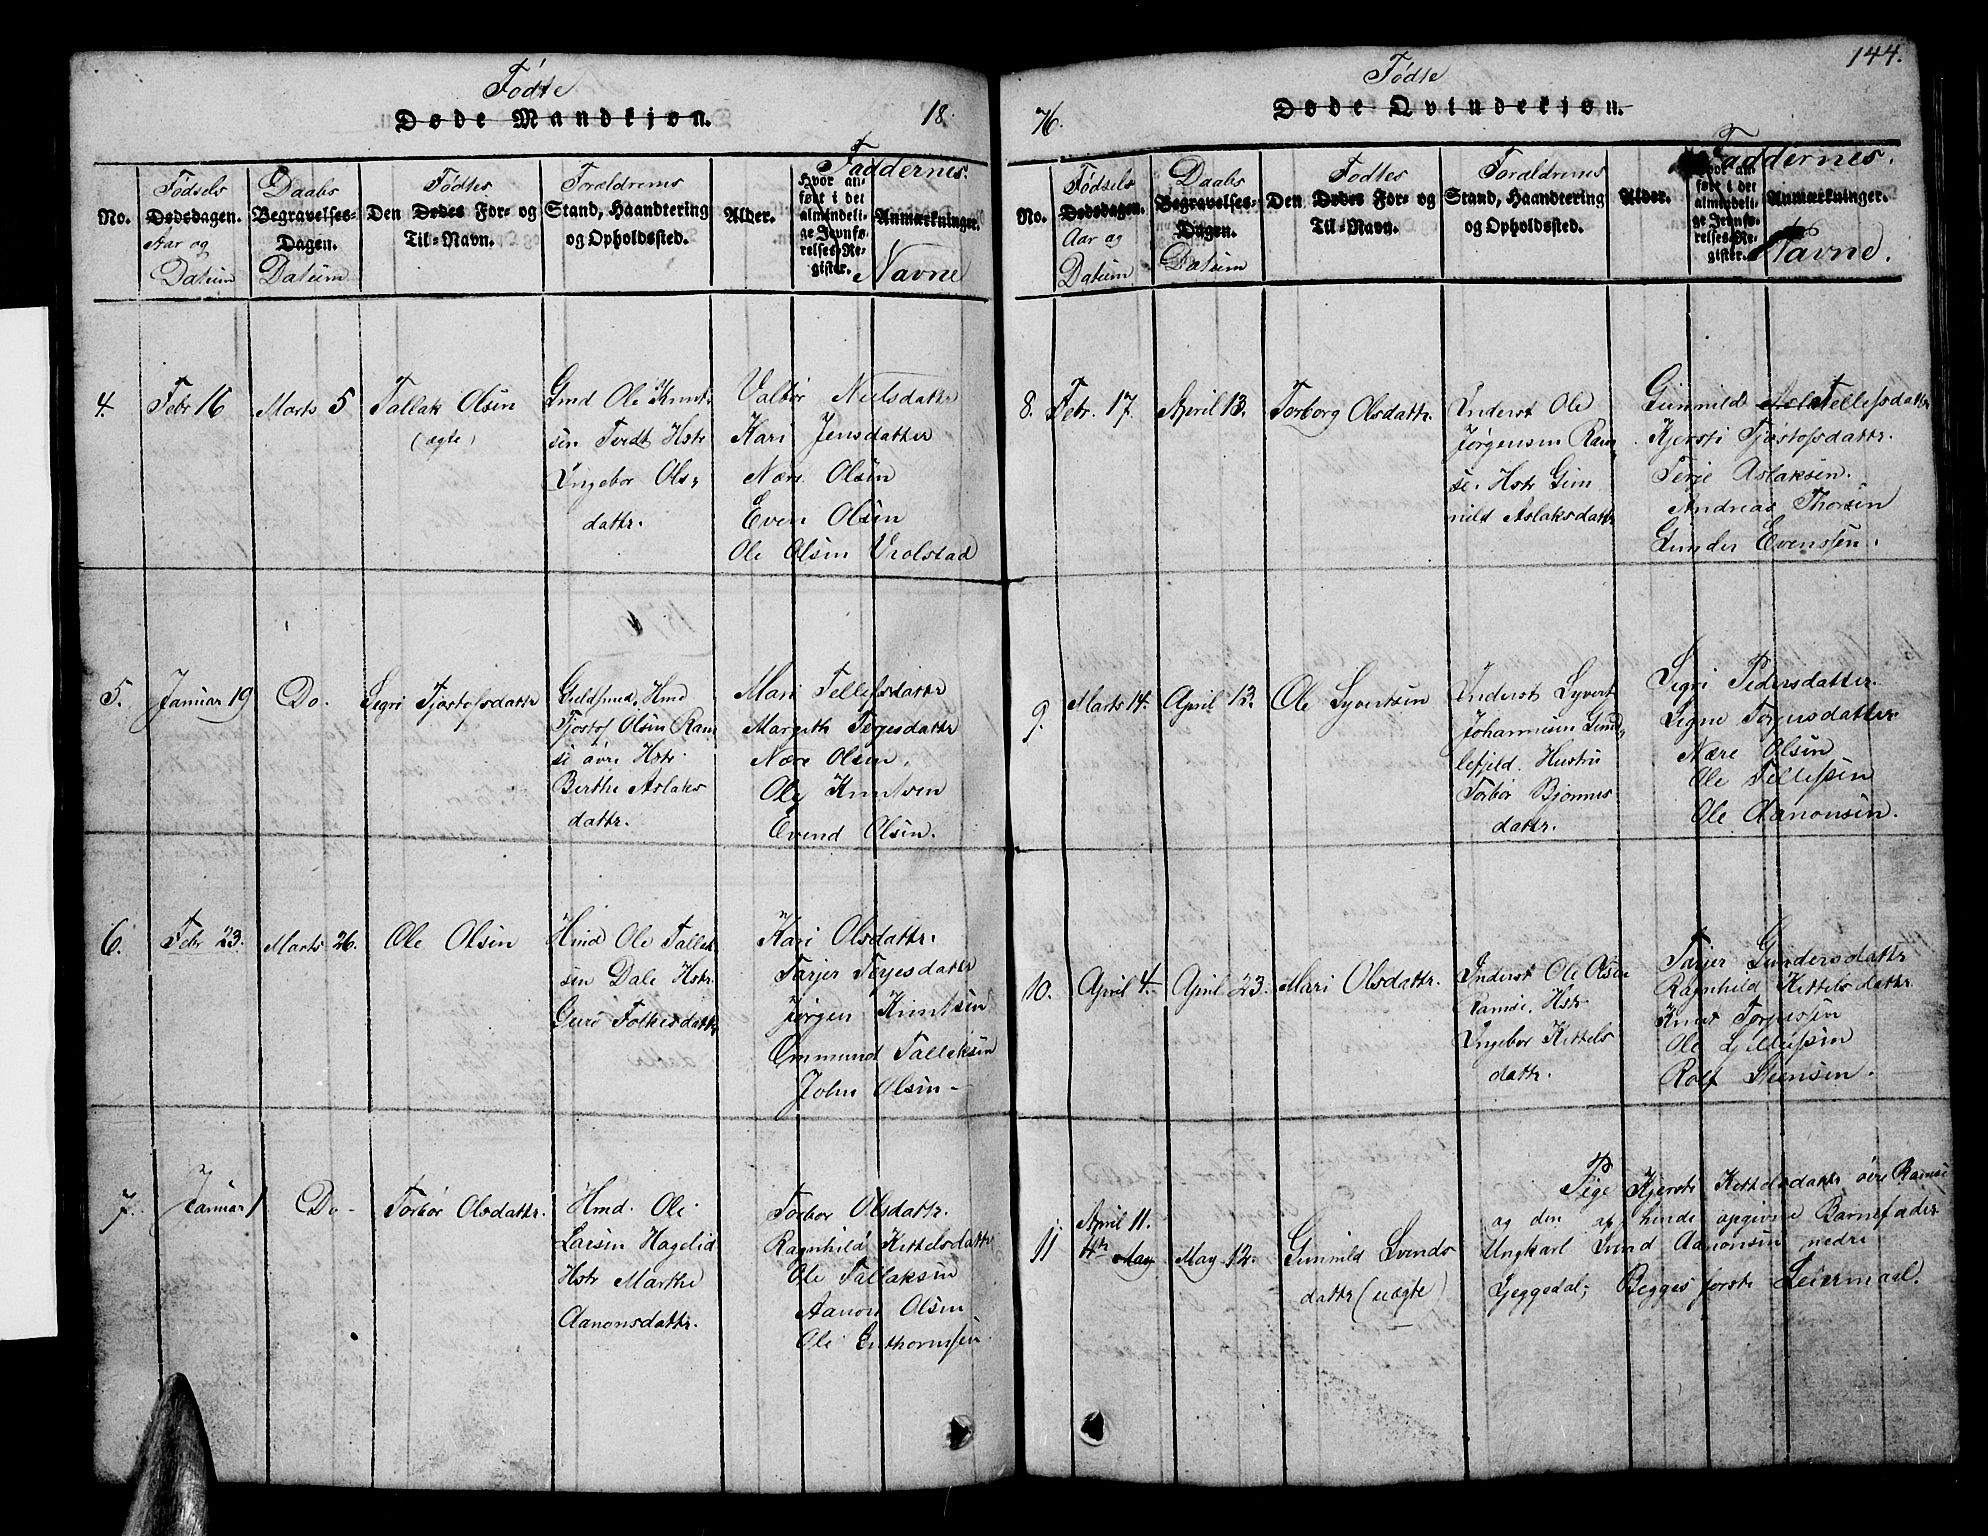 Fødte
Døde Mandkjøn.
18.
No.
Fødsels
Dødsdagen.
Aar og
Datum
Daabs
Begravelses-
Dagen.
Datum
Fødtes
Den Dødes For- og
Til-Navn.
Foraldrernes
Stand, Haandtering
og Opholdssted.
Alder.
Hvor an-
ført i det
almindeli-
ge Jevnfø-
relses-Re-
gister.
Faddernes
Anmærkninger.
Navne
4.
Febr 16
Marts 5
Tallak Olsen
(ægte)
Gmd Ole Knut-
sen Tvedt Hstr
Ingebor Ols-
dattr.
Valbor Nielsdattr
Kari Jensdatter
Nære Olsen
Even Olsen
Ole Olsen Vrolstad
5.
Januar 19
Do.
Segri Tjostofsdattr
Tjostof Olsen Ram
se øvre Hstr
Berthe Aslaks
dattr.
Mari Tellefsdattr
Margith Terjesdattr
Nære Olsen.
Ole Knutsen
Evend Olsen.
6.
Febr 23.
Marts 26.
Ole Olsen
Hmd Ole Tallak
sen Dale Hstr.
Guro Folkesdattr
Kari Olsdattr.
Tarjer Terjesdattr
Jørgen Knutsen
Ommund Tallaksen
John Olsen-
7.
Januar 1
Do-
Torbør Olsdattr.
Hmd. Ole
Larsen Hagelid
Hstr Marthe
Aanonsdattr.
Torbor Olsdattr.
Ragnhild Kittelsdattr
Ole Tallaksen
Aanon Olsen
Ole Guthormsen
144.
Fødte
Døde Qvindekjøn.
76.
No.
Fødsels
Dødsdagen.
Aar og
Datum
Daabs
Begravelses-
Dagen.
Datum
Fødtes
Den Dødes For- og
Til-Navn.
Foraldrernes
Stand, Haandtering
og Opholdssted.
Alder.
Hvor an-
ført i det
almindeli-
ge Jevnfø-
relses-Re-
gister.
Faddernes.
Anmærkninger.
Navne.
8.
Febr. 17.
April 13.
Torborg Olsdattr.
Inderst Ole
Jørgensen Ram
se. Hstr Gun
nild Aslaksdattr
Gunnild Tellefsdattr
Kjersti Tjostofsdattr.
Terje Aslaksen.
Andreas Thorsen
Gunder Evenssen.
9.
Marts 14.
April 13.
Ole Syvertsen
Inderst Syvert
Johannesen Gund
lefjeld. Hustru
Torbor Bjorns
dattr.
Segri Pedersdatter
Signe Torjusdatter
Nære Olsen
Ole Tellefsen
Ole Aanonsen.
10.
April 4.
April 23.
Mari Olsdattr.
Inderst Ole Olsen
Ramse. Hstr
Ingebor Kittels
dattr.
Tarjer Gundersdattr
Ragnhild Kittelsdattr.
Knut Torjussen
Ole
Rolf Steensen.
11
April 11.
4de May
May 12.
Gunnild Svends
dattr (uægte)
Pige Kjersti Kittelsdattr øvre Ramse
og den af hende opgivne Barnefader
Ungkarl Svend Aanonsen nedre
Gjeggedal, Begges første Leiermaal.